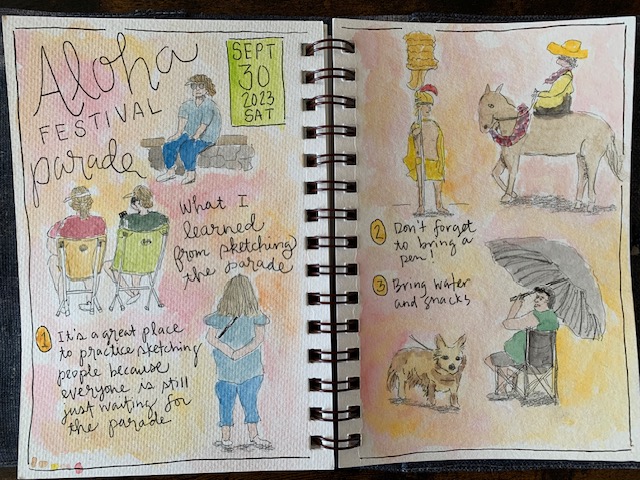 Aloha
FESTIVAL
parade
SEPT
30
2023
SAT
What I
learned
from sketching
the parade
1 It's a great place
to practice sketching
people because
everyone is still
just waiting for
the parade
2 Don't forget
to bring a
pen!
3 Bring water
and snacks